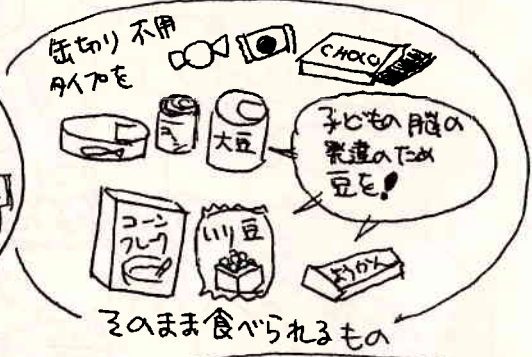 缶切り不用
タイプを
CHOCO
コーン
大豆
子どもの脳の
発達のため
豆を!
コーン
フレーク
いり豆
ようかん
そのまま食べられるもの